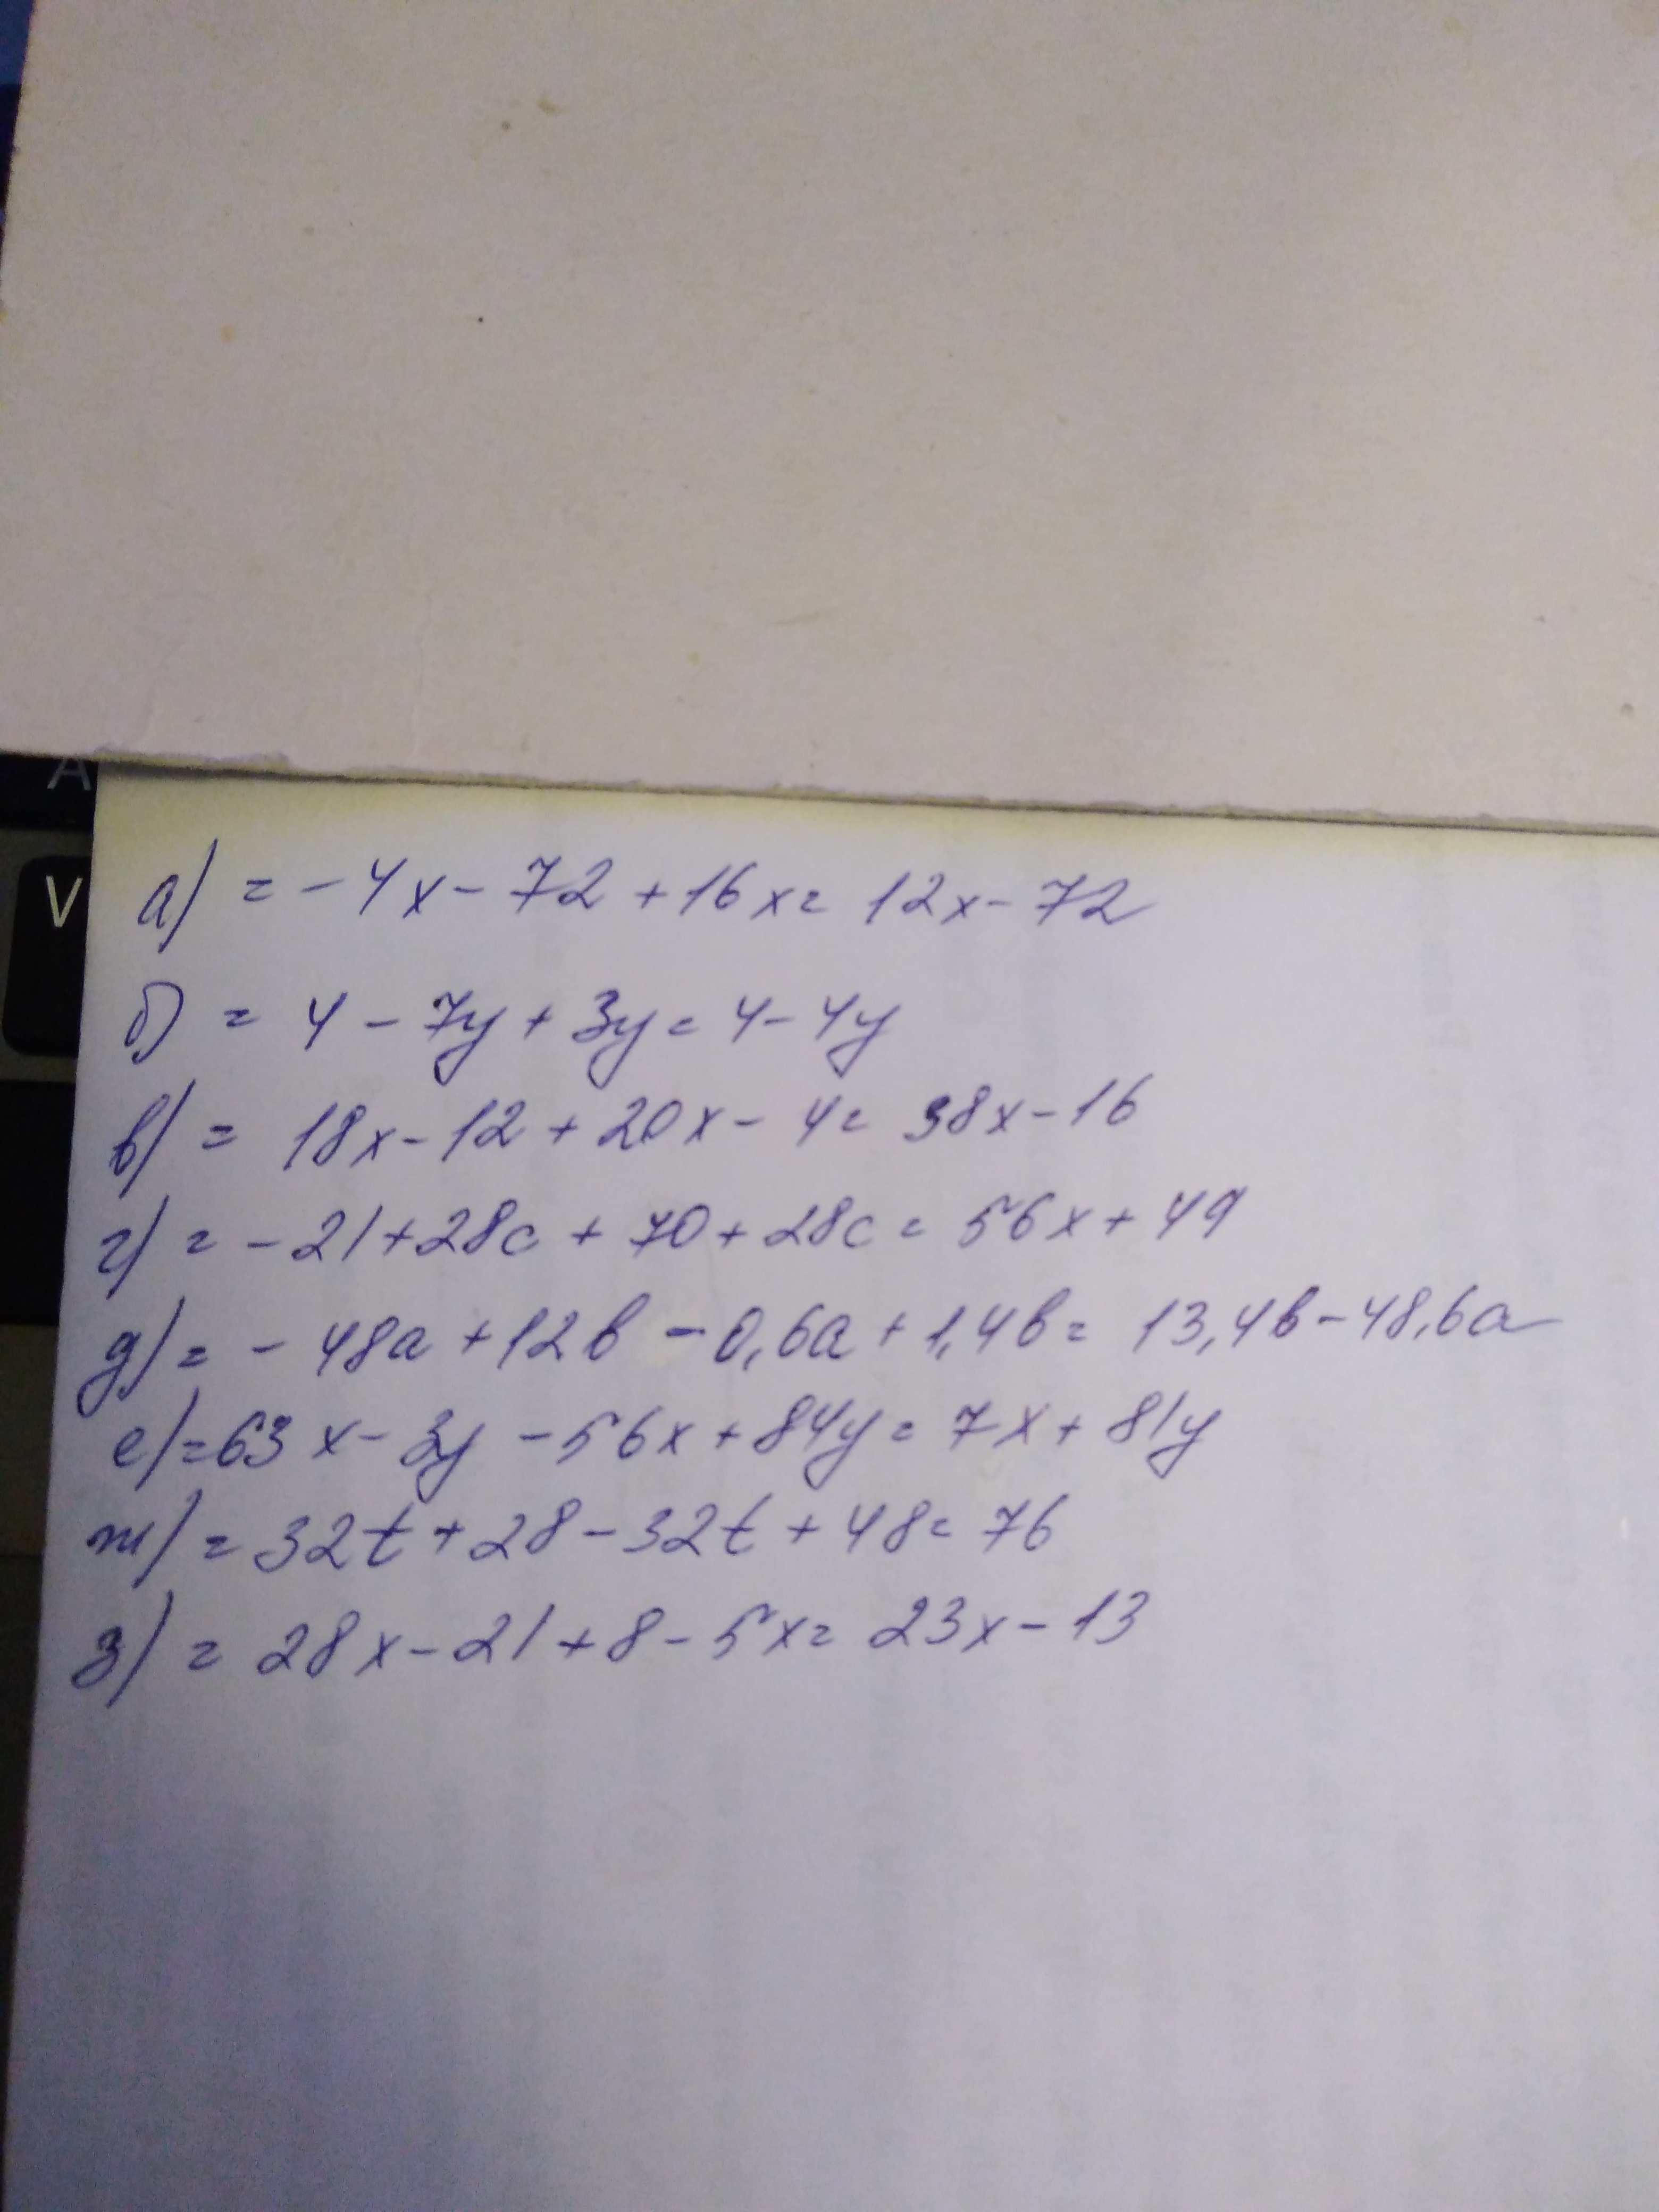 A
V
а) = - 4x - 72 + 16x = 12x - 72
б) = 4 - 7y + 3y = 4 - 4y
в) = 18x - 12 + 20x - 4 = 38x - 16
г) = - 21 + 28c + 70 + 28c = 56x + 49
д) = - 48a + 12b - 0,6a + 1,4b = 13,4b - 48,6a
е) = 63x - 3y - 56x + 84y = 7x + 81y
ж) = 32t + 28 - 32t + 48 = 76
з) = 28x - 21 + 8 - 5x = 23x - 13